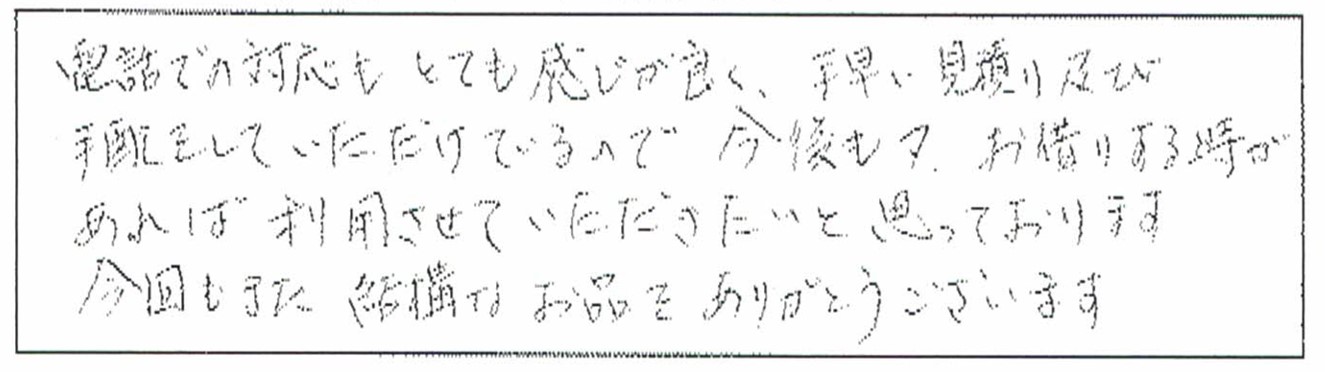 電話での対応もとても感じが良く、手早い見積り及び
手配をしていただけているので 今後も、お借りする時が
あれば 利用させていただきたいと思っております
今回もまた 結構なお品を ありがとうございます